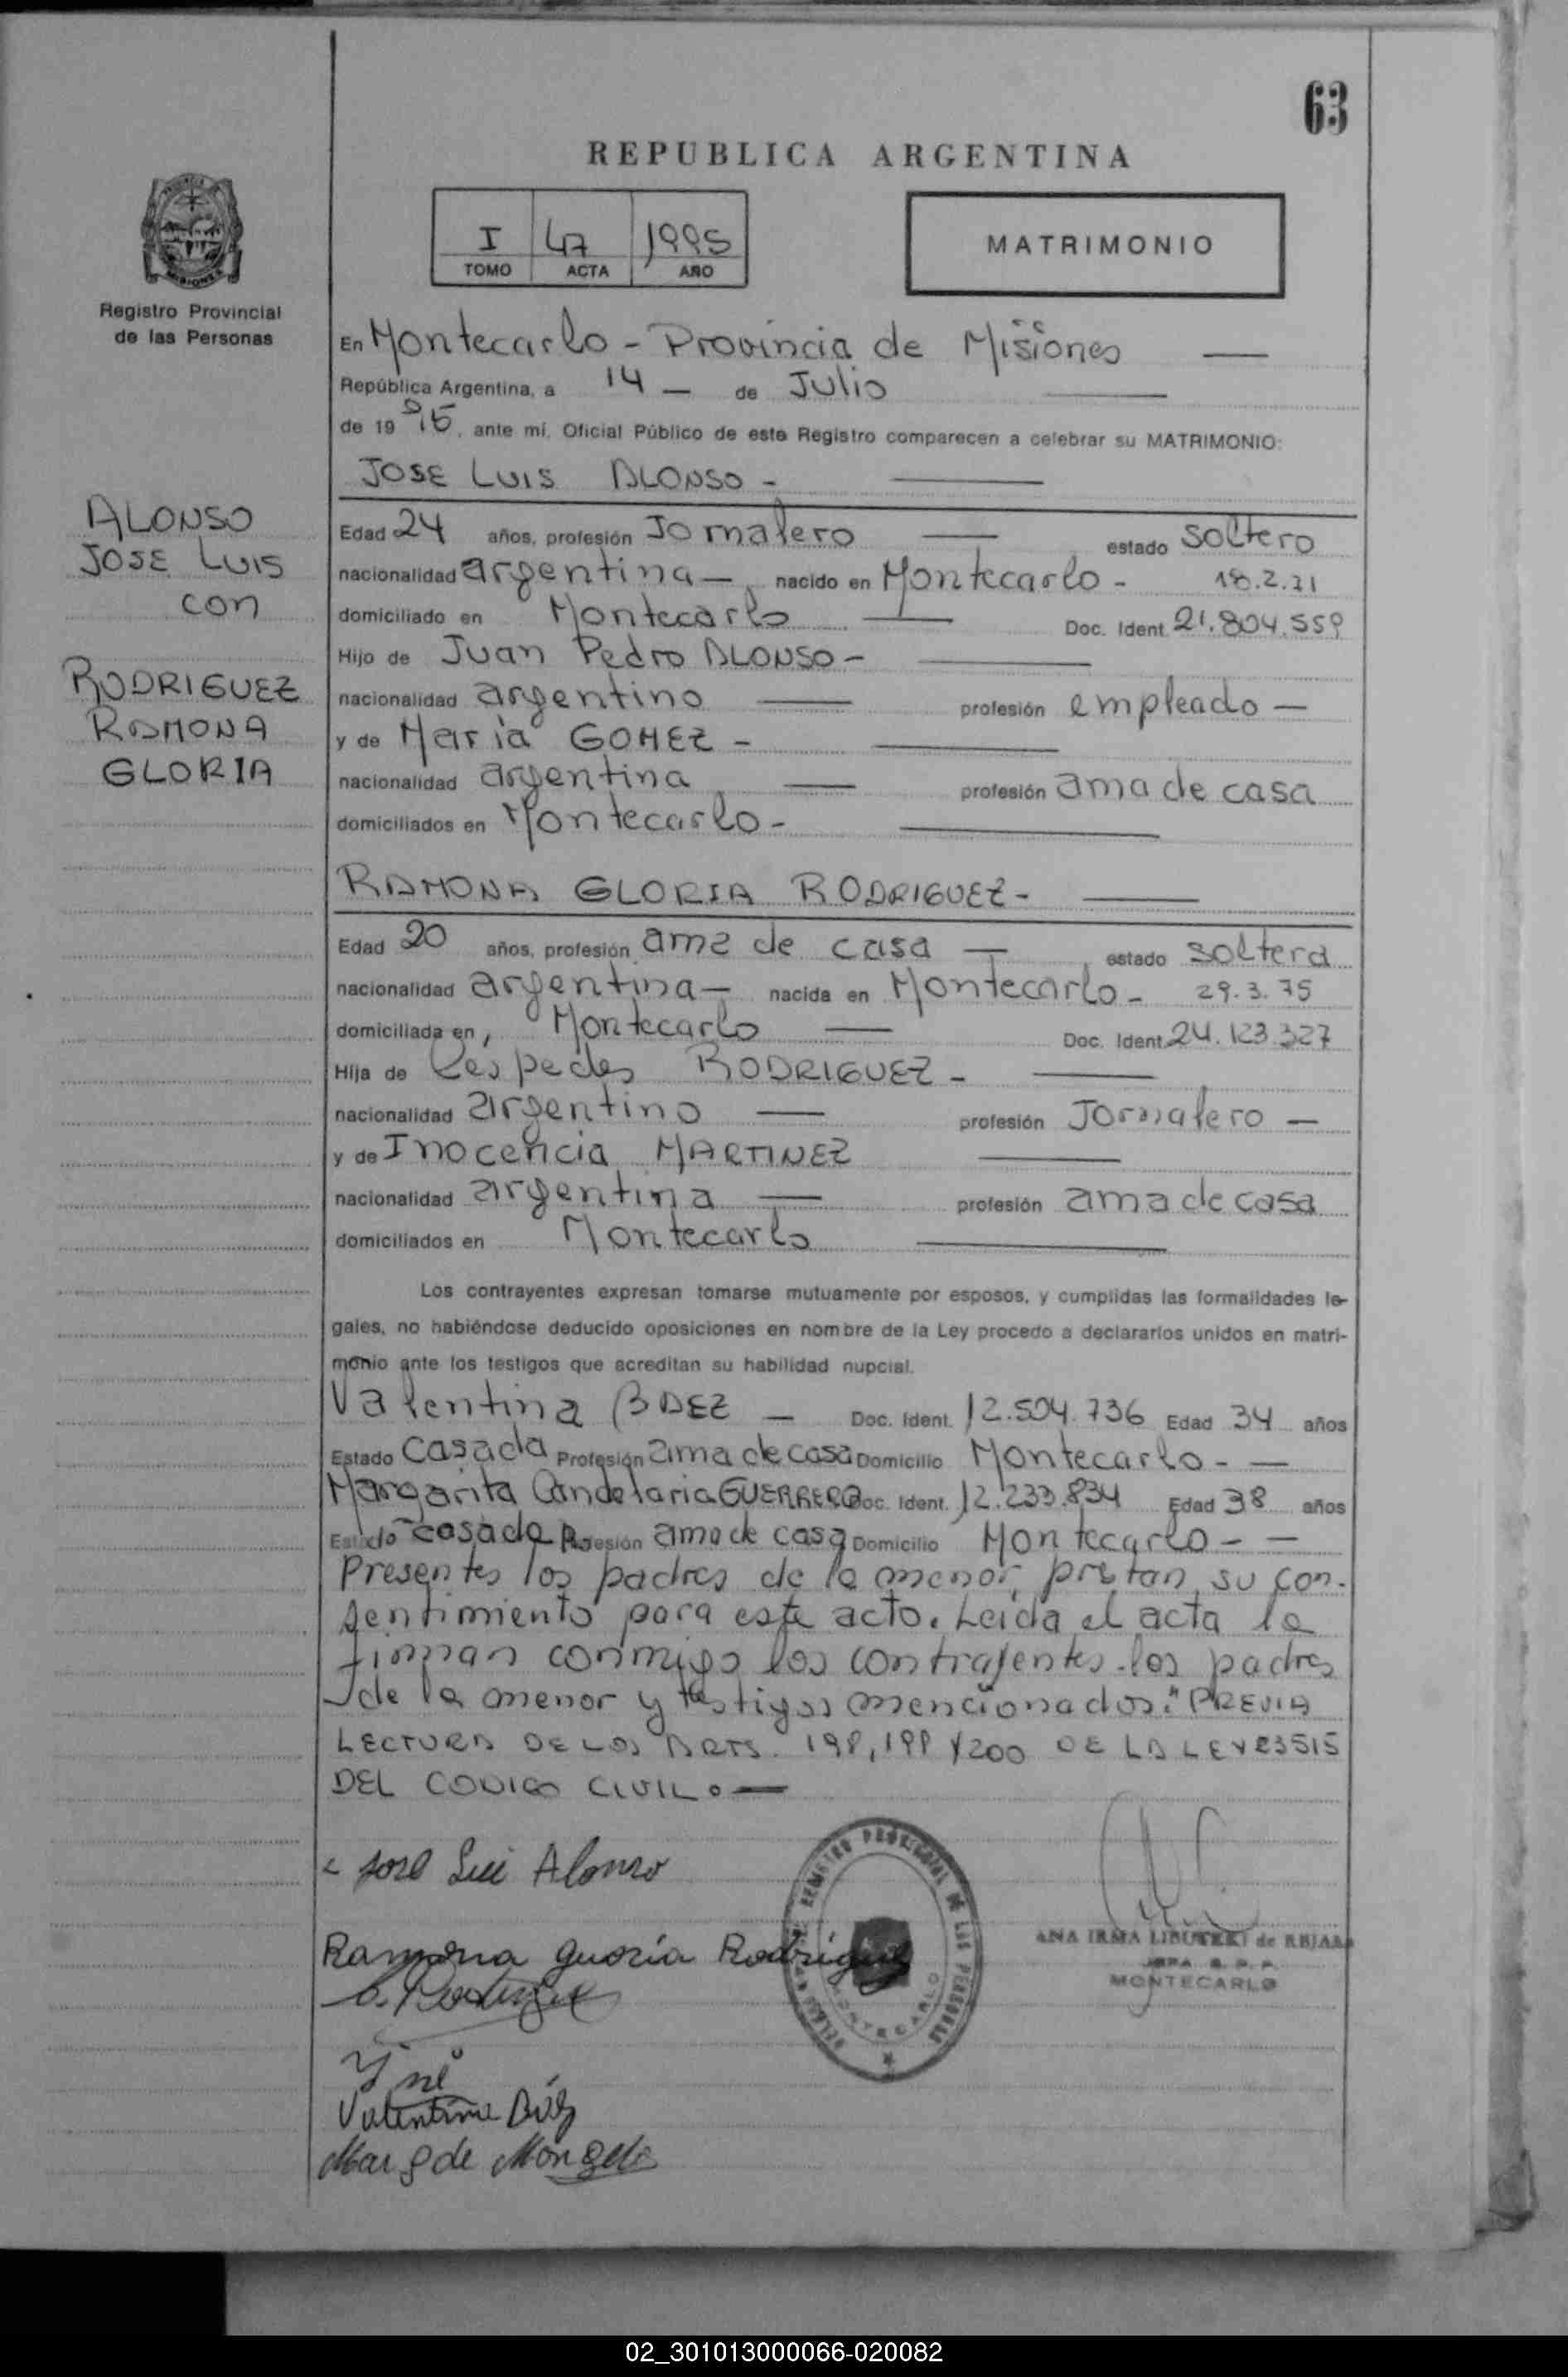 63
REPUBLICA ARGENTINA
I 47 1995
TOMO ACTA AÑO
MATRIMONIO
Registro Provincial
de las Personas
En Montecarlo - Provincia de Misiones
República Argentina, a 14 - de Julio
de 1995, ante mí, Oficial Público de este Registro comparecen a celebrar su MATRIMONIO:
JOSE LUIS ALONSO -
ALONSO
JOSE LUIS
con
RODRIGUEZ
RAMONA
GLORIA
Edad 24 años, profesión Jornalero estado soltero
nacionalidad argentina - nacido en Montecarlo - 18.2.71
domiciliado en Montecarlo Doc. Ident. 21.804.559
Hijo de Juan Pedro ALONSO -
nacionalidad argentino profesión empleado -
y de Maria GOMEZ -
nacionalidad argentina profesión ama de casa
domiciliados en Montecarlo -
RAMONA GLORIA RODRIGUEZ -
Edad 20 años, profesión ama de casa - estado soltera
nacionalidad argentina - nacida en Montecarlo - 29.3.75
domiciliada en, Montecarlo Doc. Ident. 24.123.327
Hija de Cespedes RODRIGUEZ -
nacionalidad argentino profesión Jornalero -
y de Inocencia MARTINEZ
nacionalidad argentina profesión ama de casa
domiciliados en Montecarlo
Los contrayentes expresan tomarse mutuamente por esposos, y cumplidas las formalidades le-
gales, no habiéndose deducido oposiciones en nombre de la Ley procedo a declararlos unidos en matri-
monio ante los testigos que acreditan su habilidad nupcial.
Valentina BAEZ - Doc. Ident. 12.504.736 Edad 34 años
Estado Casada Profesión ama de casa Domicilio Montecarlo - -
Margarita Candelaria GUERRERO Doc. Ident. 12.233.834 Edad 38 años
Estado casada Profesión ama de casa Domicilio Montecarlo - -
Presentes los padres de la menor, prstan su con-
sentimiento para este acto. Leida el acta la
firman conmigo los contrayentes. los padres
de la menor y testigos mencionados." PREVIA
LECTURA DE LOS ARTS. 198, 199 y 200 DE LA LEY 23515
DEL CODIGO CIVIL. -
Jose Lui Alonso
Ramona Guoria Rodriguez
C. Rodriguez
Valentina Báez
Marg de
REGISTRO PROVINCIAL DE LAS PERSONAS
MONTECARLO
ANA IRMA de
MONTECARLO
02_301013000066-020082